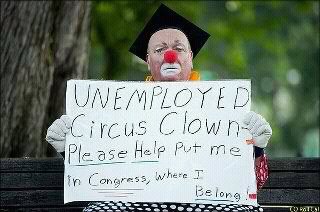 UNEMPLOYED
Circus Clown-
Please Help Put me
in Congress, Where I
Belong!